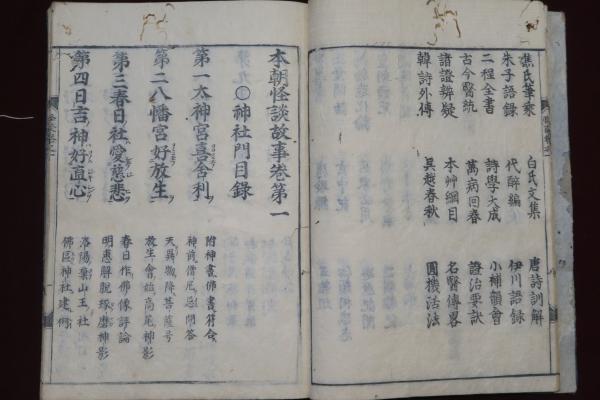 焦氏筆乘　白氏文集　唐詩訓解
朱子語録　代醉編　伊川語録
二程全書　詩學大成　小補韻會
古今醫統　萬病回春　證治要訣
諸證辨疑　本艸綱目　名醫傳畧
韓詩外傳　吳越春秋　圓機活法
本朝怪談故事卷第一
神社門目録
第一太神宮喜舎利
附神畫佛畫符合
神前僧尼忌問答
第二八幡宮好放生
天兵職降菩薩号
放生會鎮高尾神影
第三春日社愛慈悲
春日作佛像評論
明惠解脱琢磨神影
第四日吉神好直心
洛陽藥山王社
佛區神社建例